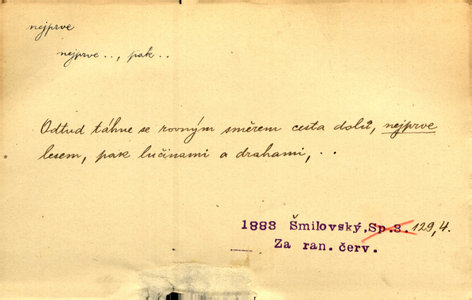 nejprve
nejprve .., pak ..
Odtud táhne se rovným směrem cesta dolů, nejprve
lesem, pak lučinami a drahami, ..
1883 Šmilovský, Sp. 3. 129,4.
Za ran. červ.